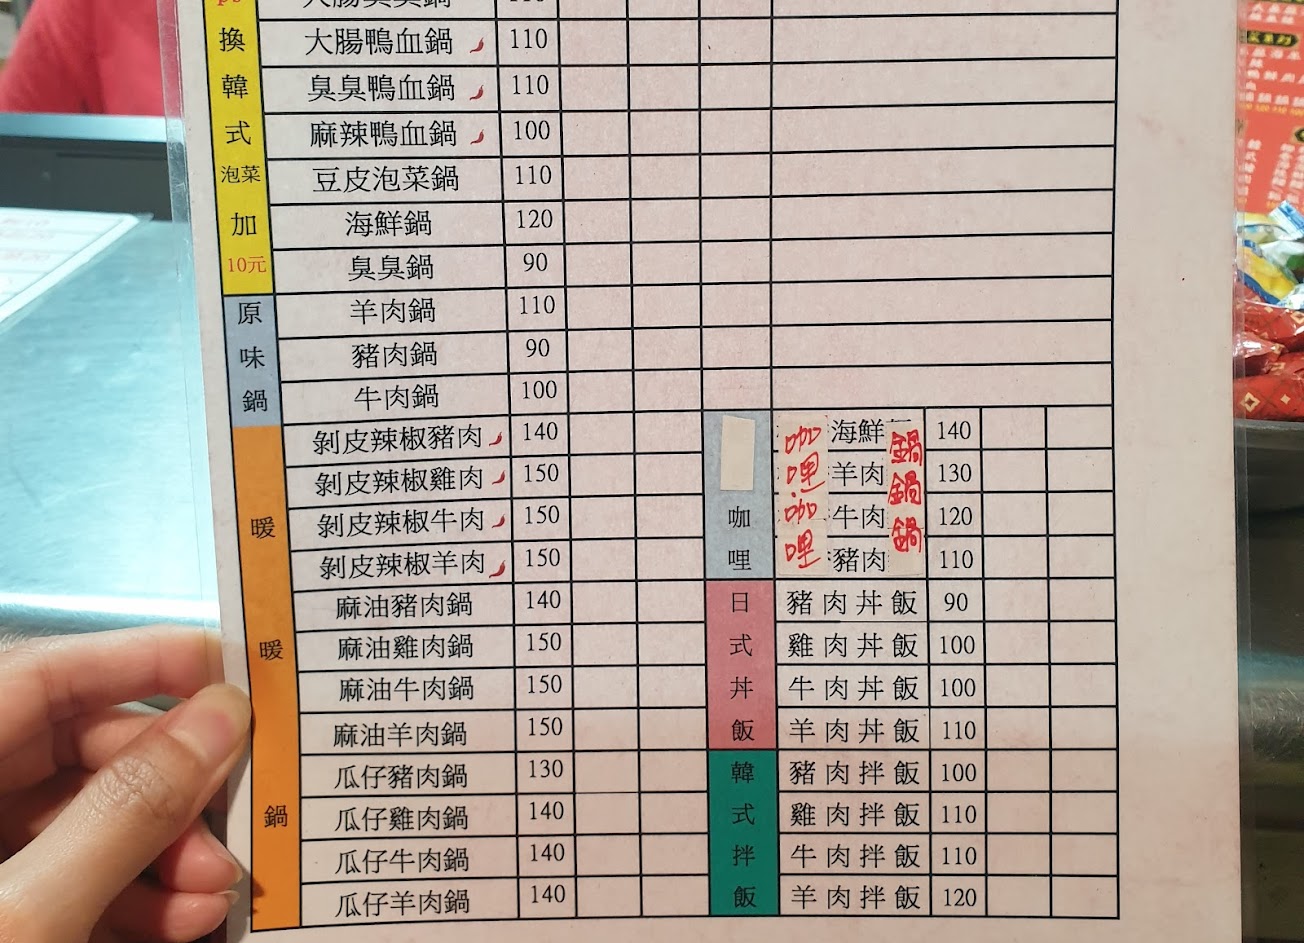 換韓式泡菜加10元
大腸鴨血鍋 110
臭臭鴨血鍋 110
麻辣鴨血鍋 100
豆皮泡菜鍋 110
海鮮鍋 120
臭臭鍋 90
原味鍋
羊肉鍋 110
豬肉鍋 90
牛肉鍋 100
暖暖鍋
剝皮辣椒豬肉 140
剝皮辣椒雞肉 150
剝皮辣椒牛肉 150
剝皮辣椒羊肉 150
麻油豬肉鍋 140
麻油雞肉鍋 150
麻油牛肉鍋 150
麻油羊肉鍋 150
瓜仔豬肉鍋 130
瓜仔雞肉鍋 140
瓜仔牛肉鍋 140
瓜仔羊肉鍋 140
咖哩
咖哩咖哩
鍋鍋鍋
海鮮 140
羊肉 130
牛肉 120
豬肉 110
日式丼飯
豬肉丼飯 90
雞肉丼飯 100
牛肉丼飯 100
羊肉丼飯 110
韓式拌飯
豬肉拌飯 100
雞肉拌飯 110
牛肉拌飯 110
羊肉拌飯 120